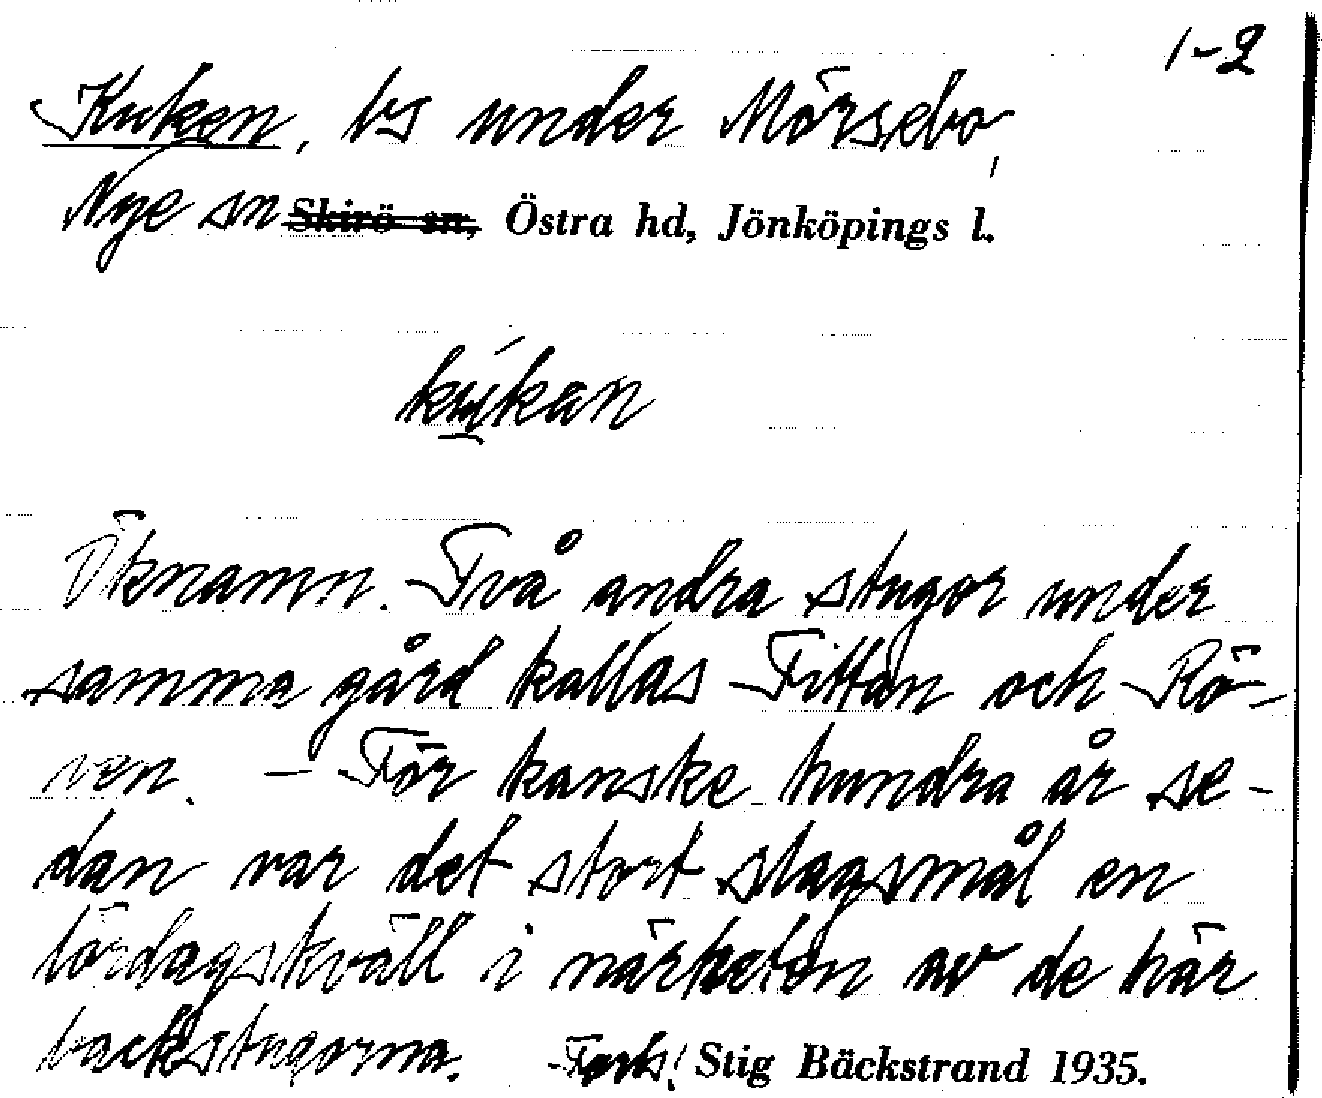 1-2
Kuken, bs under Mörsebo,
Nye sn Skirö sn, Östra hd, Jönköpings l.
kúkan
Öknamn. Två andra stugor under
samma gård kallas Fittan och Rö-
ven. – För kanske hundra år se-
dan var det stort slagsmål en
lördagskväll i närheten av de här
backstugorna. Stig Bäckstrand 1935.